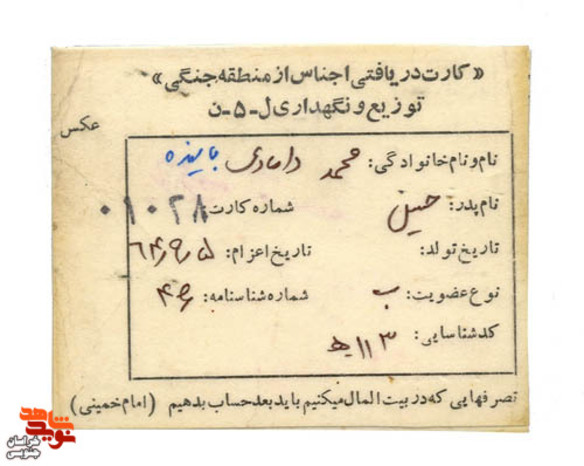 «کارت دریافتی اجناس از منطقه جنگی»
توزیع و نگهداری ل-۵-ن
عکس
نام و نام خانوادگی: محمد دامادی پاینده
نام پدر: حسین شماره کارت: ۰۱۰۲۸
تاریخ تولد: تاریخ اعزام:
نوع عضویت: ب شماره شناسنامه:
کد شناسایی:
تصرفهایی که در بیت المال میکنیم باید بعد حساب بدهیم (امام خمینی)
نوید شاهد
خراسان جنوبی